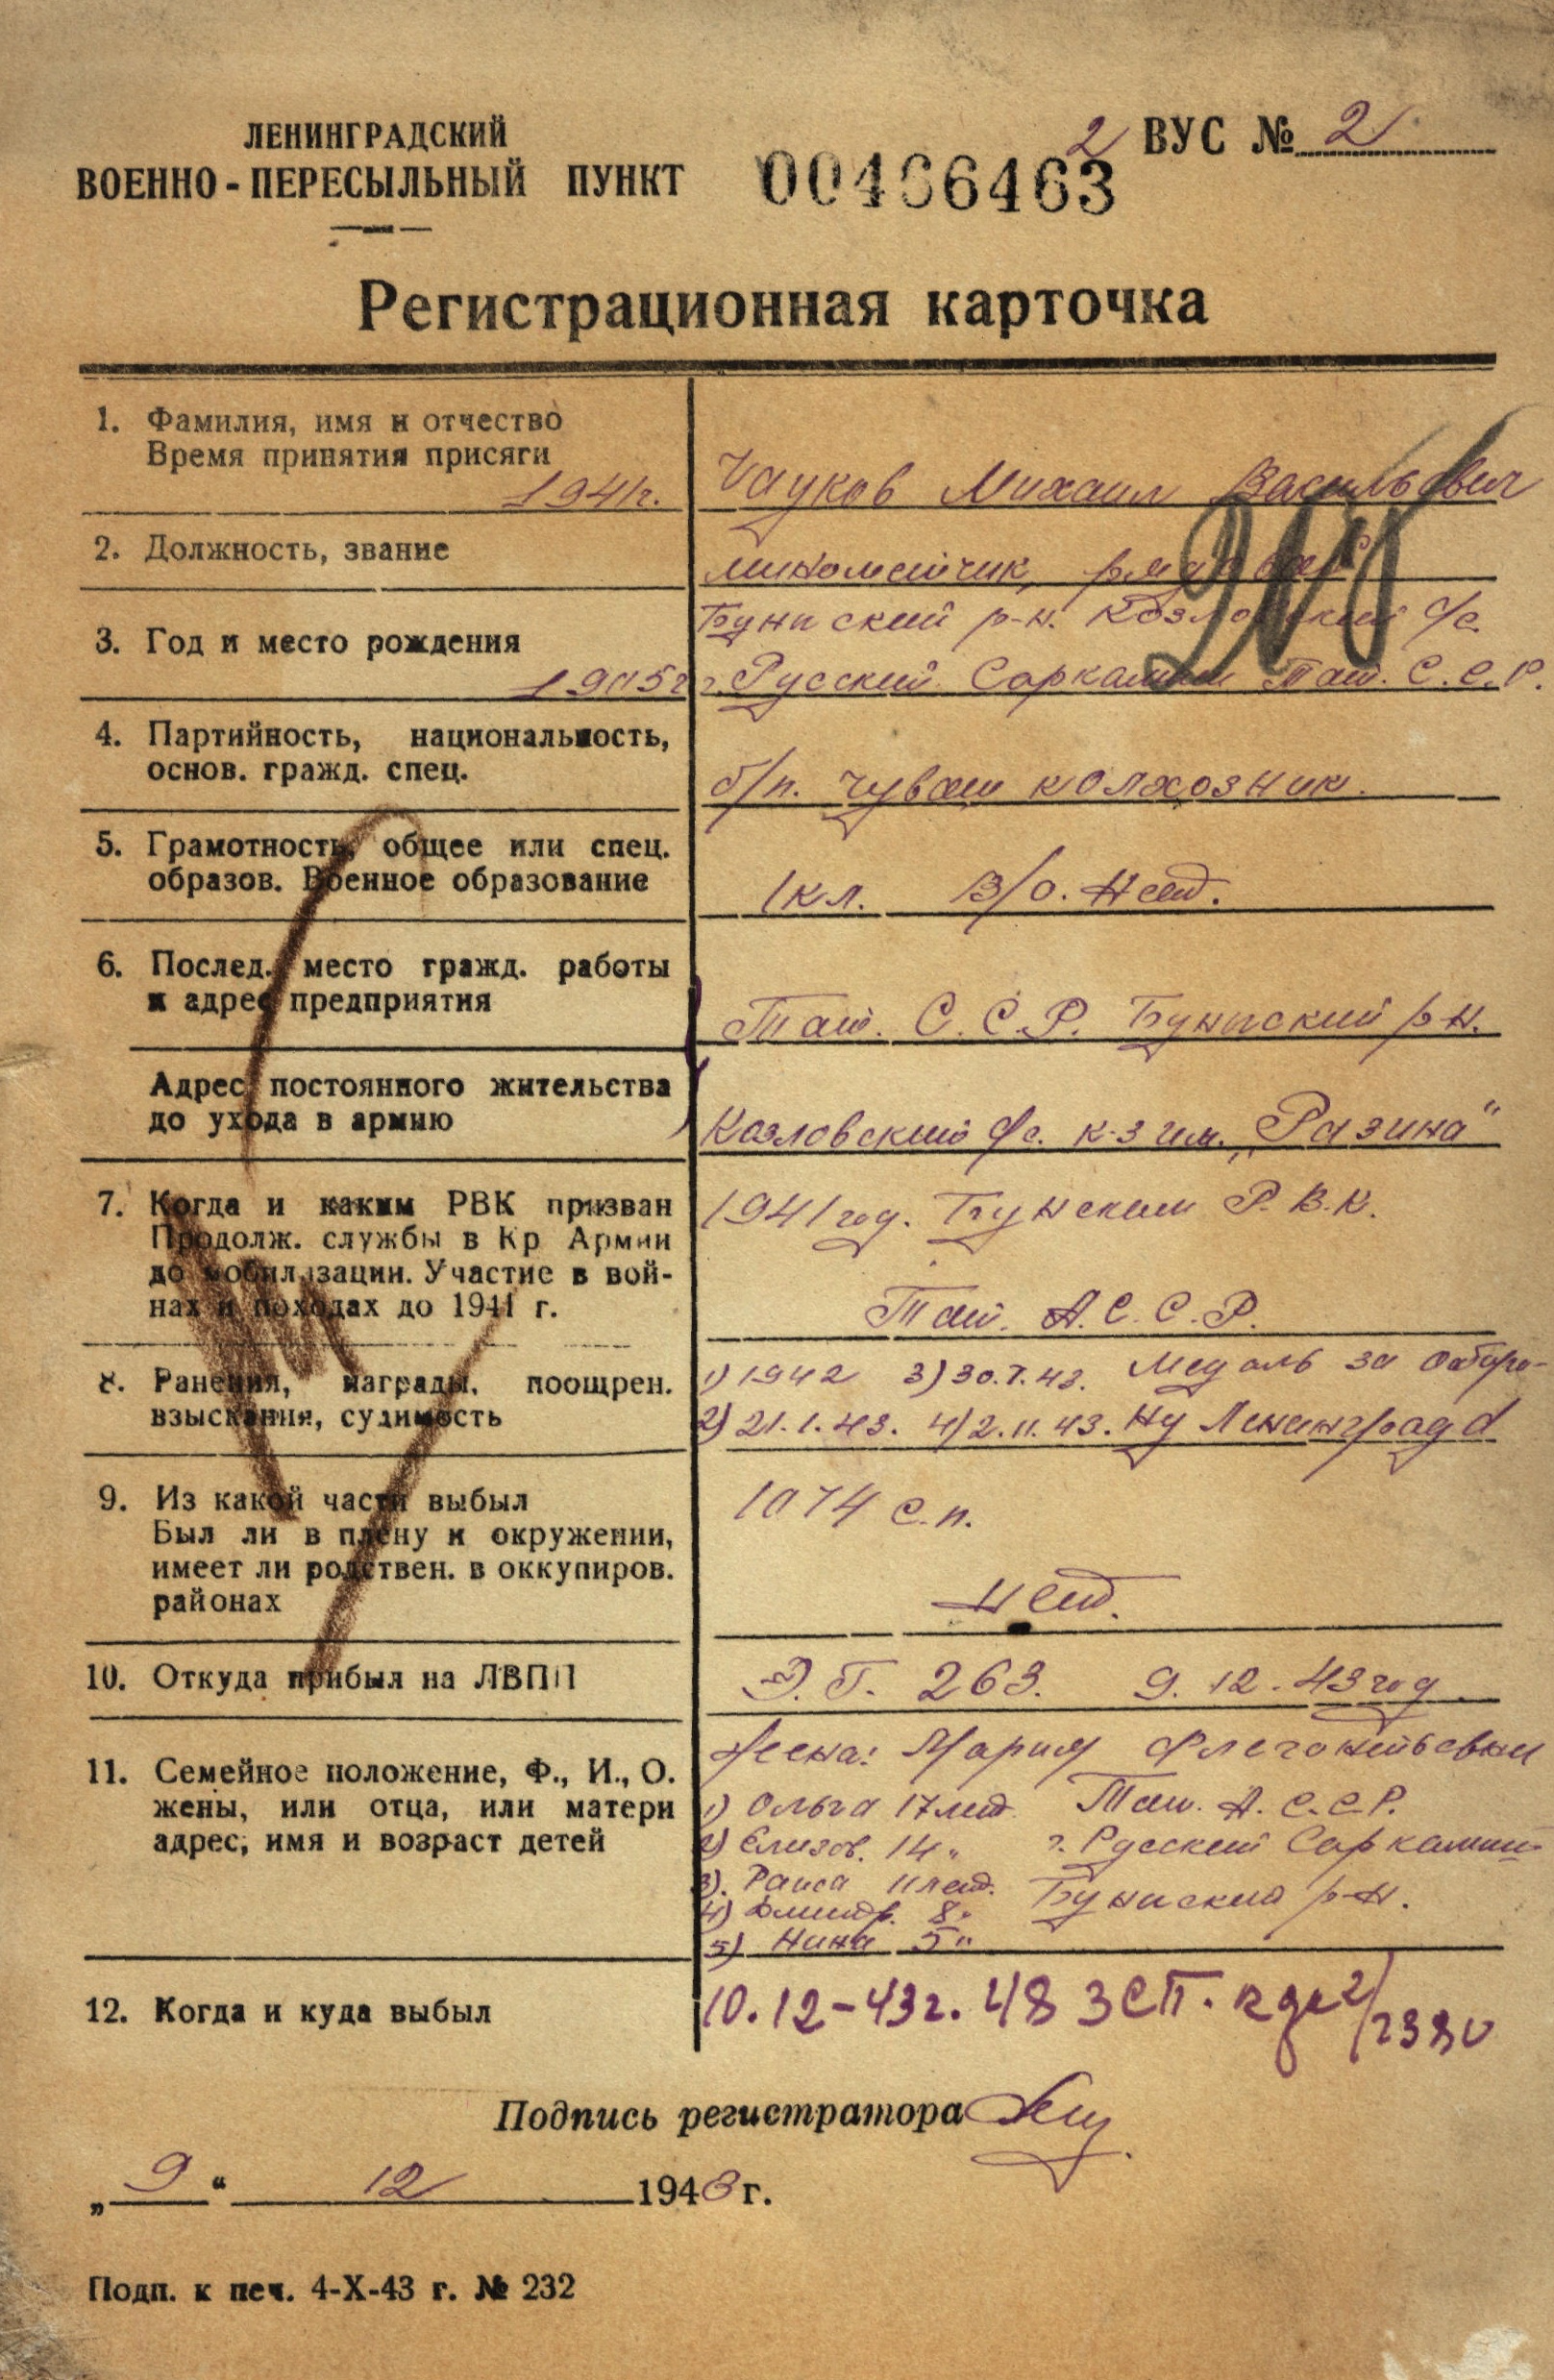 ЛЕНИНГРАДСКИЙ
ВОЕННО-ПЕРЕСЫЛЬНЫЙ ПУНКТ
00466463
2 ВУС № 2
Регистрационная карточка
1. Фамилия, имя и отчество
Время принятия присяги
1941г. Чауков Михаил Васильевич
2. Должность, звание
минометчик, рядовой
Буинский р-н. Козловский с/с.
3. Год и место рождения
1905г. Русский Саркамыш Тат. С.С.Р.
4. Партийность, национальность,
основ. гражд. спец.
б/п. чуваш колхозник.
5. Грамотность, общее или спец.
образов. Военное образование
1 кл. В/о. Нет.
6. Послед. место гражд. работы
и адрес предприятия
Тат. С.С.Р. Буинский р-н.
Адрес постоянного жительства
до ухода в армию
Козловский с/с. к-з им. „Разина"
7. Когда и каким РВК призван
Продолж. службы в Кр Армии
до мобилизации. Участие в вой-
нах и походах до 1941 г.
1941 год. Буинским Р.В.К.
Тат. А.С.С.Р.
8. Ранения, награды, поощрен.
взыскания, судимость
1) 1942 3) 30.7.43. Медаль за оборо-
2) 21.1.43. 4) 2.11.43. ну Ленинграда
9. Из какой части выбыл
Был ли в плену и окружении,
имеет ли родствен. в оккупиров.
районах
1074 с.п.
Нет.
10. Откуда прибыл на ЛВПП
Э.Г. 263. 9.12.43 год.
11. Семейное положение, Ф., И., О.
жены, или отца, или матери
адрес, имя и возраст детей
Жена: Мария Флегонтьевна
1) Ольга 17 лет. Тат. А.С.С.Р.
2) Елизов. 14 " г. Русский Саркамыш
3). Раиса 11 лет. Буинский р-н.
4) Дмитр. 8"
5) Нина 5"
12. Когда и куда выбыл
10.12-43г. 48 ЗСП.
Подпись регистратора
„ 9 " 12 1943 г.
Подп. к печ. 4-X-43 г. № 232